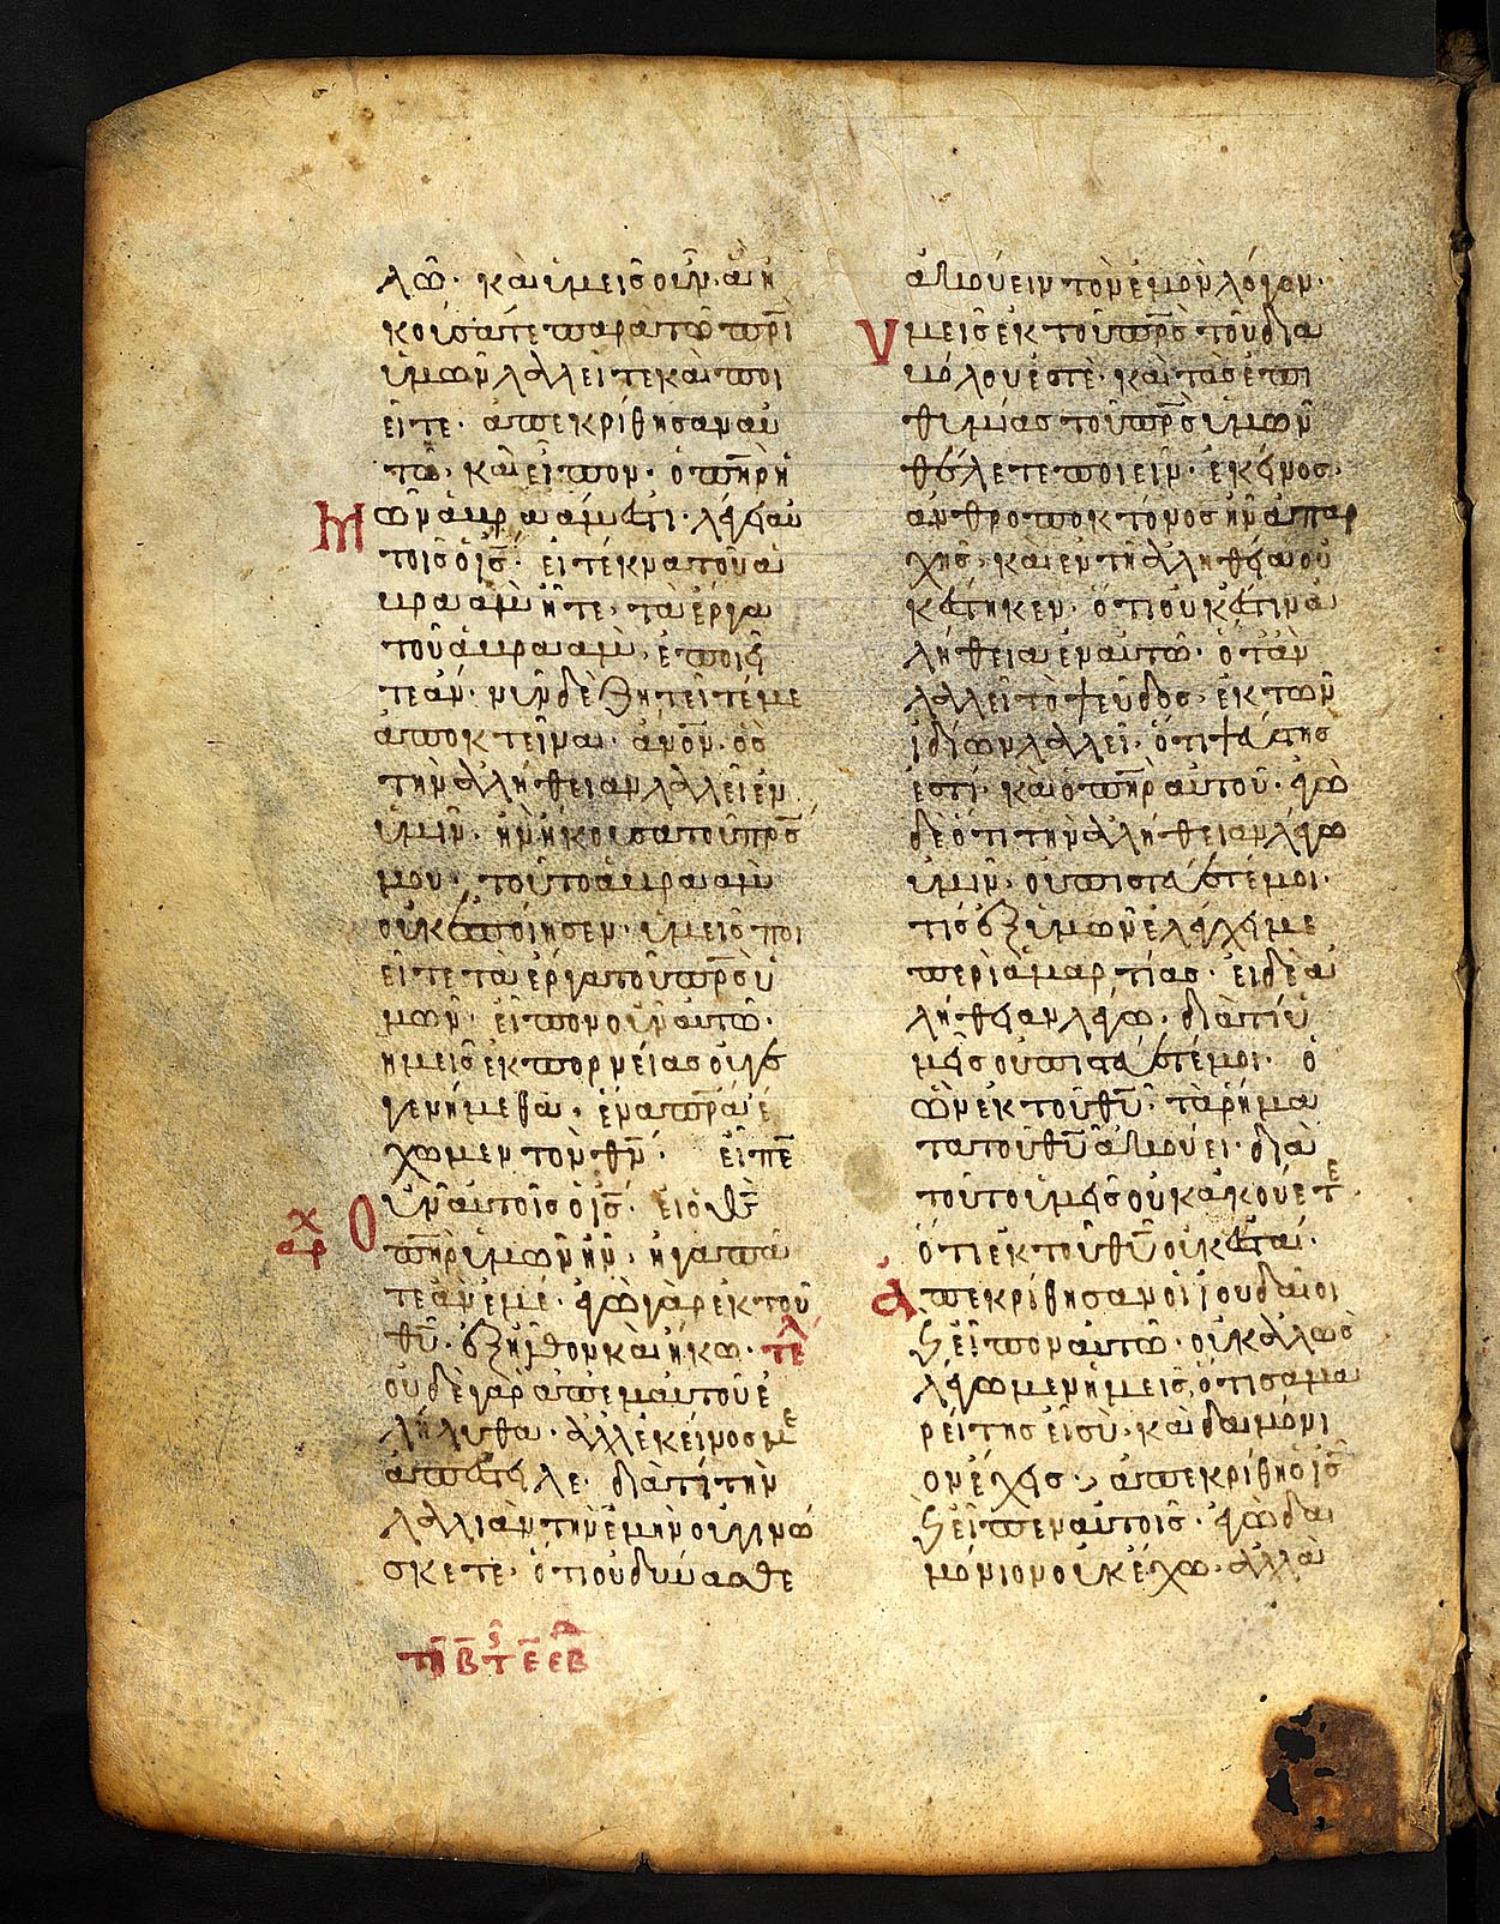 λῶ· καὶ ὑμεῖς οὖν, ἃ ἠ
κούσατε παρὰ τῶ πρ̅ι
ὑμῶν λαλλεῖτε καὶ ποι
εῖτε· ἀπεκρίθησαν αὐ
τῶ, καὶ εἶπον· ὁ πη̅ρ ἡ
μῶν ἀβραάμ ἐστι· λέγει αὐ
τοῖς ὁ ι̅ς̅· εἰ τέκνα τοῦ ἀ
βραὰμ ἦτε, τὰ ἔργα
τοῦ ἀβραὰμ, ἐποιεῖ
τε ἄν· νῦν δὲ ζητεῖτέ με
ἀποκτεῖναι· α̅νο̅ν· ὃς
τὴν ἀλλήθειαν λαλλεῖ ἐν
ὑμῖν· ἣν ἤκουσα τοῦ πρ̅ς
μου· τοῦτο ἀβραὰμ
οὐκ ἐποίησεν· ὑμεῖς ποι
εῖτε τὰ ἔργα τοῦ πρ̅ς ὑ
μῶν· εἶπον οὖν αὐτῶ·
ἡμεῖς ἐκ πορνείας οὐ γε
γενήμεθα, ἕνα πρ̅α ἔ
χωμεν τὸν θ̅ν̅· εἶπε̅
Οὖν αὐτοῖς ὁ ι̅ς̅· εἰ ὁ θ̅ς̅
χ
αρ
πη̅ρ ὑμῶν ἦν, ἠγαπᾶ
τε ἂν ἐμέ· ἐγὼ γὰρ ἐκ τοῦ
θ̅υ̅· ἐξῆλθον καὶ ἥκω· τελ
οὐδὲ γὰρ ἀπ' ἐμαυτοῦ ἐ
λήλυθα· ἀλλ' ἐκεῖνος με
ἀπέστειλε· διὰ τί τὴν
λαλλιὰν τὴν ἐμὴν οὐ γινώ
σκετε· ὅτι οὐ δύνασθε
ἀκούειν τὸν ἐμὸν λόγον·
Υμεῖς ἐκ τοῦ πρ̅ς τοῦ δια
βόλου ἐστὲ· καὶ τὰς ἐπι
θυμίας τοῦ πρ̅ς ὑμῶν
θέλετε ποιεῖν· ἐκεῖνος·
ἀνθροποκτόνος ἦν ἀπ' ἀρ
χῆς, καὶ ἐν τῆ ἀλληθεία οὐ
κ ἔστηκεν· ὅτι οὐκ ἔστιν ἀ
λήθεια ἐν αὐτῶ· ὅταν
λαλλεῖ τὸ ψεῦδος, ἐκ τῶν
ἰδίων λαλλεῖ· ὅτι ψεύστης
ἐστί· καὶ ὁ πη̅ρ αὐτοῦ· ἐγὼ
δὲ ὅτι τὴν ἀλλήθειαν λέγω
ὑμῖν, οὐ πιστεύετέ μοι·
τίς ἐξ ὑμῶν ἐλέγχει με
περὶ ἁμαρτίας· εἰ δὲ ἀ
λήθειαν λέγω· διὰ τί ὑ
μεῖς οὐ πιστεύετέ μοι· ὁ
ὢν ἐκ τοῦ θ̅υ̅· τὰ ρήμα
τα τοῦ θ̅υ̅ ἀκούει· διὰ
τοῦτο ὑμεῖς οὐκ ἀκούετε·
ὅτι ἐκ τοῦ θ̅υ̅ οὐκ ἐστέ·
Ἀπεκρίθησαν οἱ ἰουδαῖοι
ϗ εἶπον αὐτῶ· οὐ καλλῶς
λέγωμεν ἡμεῖς, ὅτι σαμα
ρείτης εἶ σὺ, καὶ δαιμόνι
ον ἔχεις· ἀπεκρίθη ὁ ι̅ς̅
ϗ εἶπεν αὐτοῖς· ἐγὼ δαι
μόνιον οὐκ ἔχω· ἀλλὰ